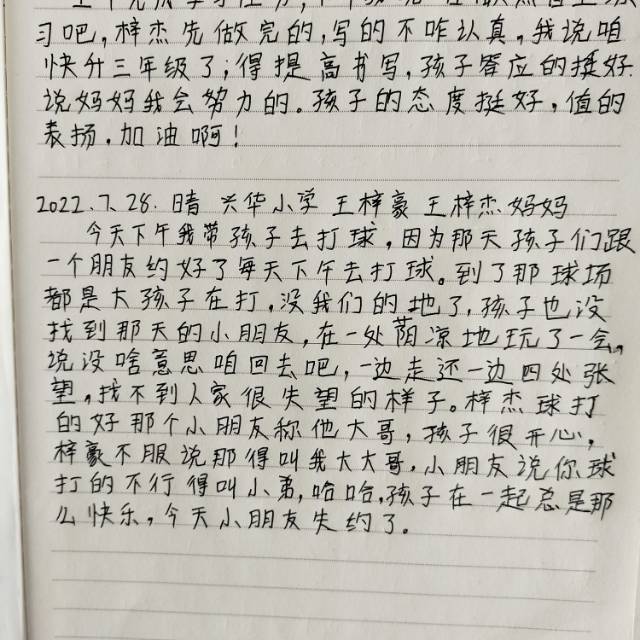 习吧，梓杰先做完的，写的不咋认真，我说咱
快升三年级了；得提高书写，孩子答应的挺好.
说妈妈我会努力的。孩子的态度挺好，值的
表扬.加油啊！
2022.7.28. 晴 兴华小学 王梓豪 王梓杰妈妈
今天下午我带孩子去打球，因为那天孩子们跟
一个朋友约好了每天下午去打球。到了那球场
都是大孩子在打，没我们的地了，孩子也没
找到那天的小朋友，在一处荫凉地玩了一会，
说没啥意思咱回去吧，一边走还一边四处张
望，找不到人家很失望的样子。梓杰球打
的好那个小朋友称他大哥，孩子很开心，
梓豪不服说那得叫我大大哥，小朋友说你球
打的不行得叫小弟，哈哈，孩子在一起总是那
么快乐，今天小朋友失约了.